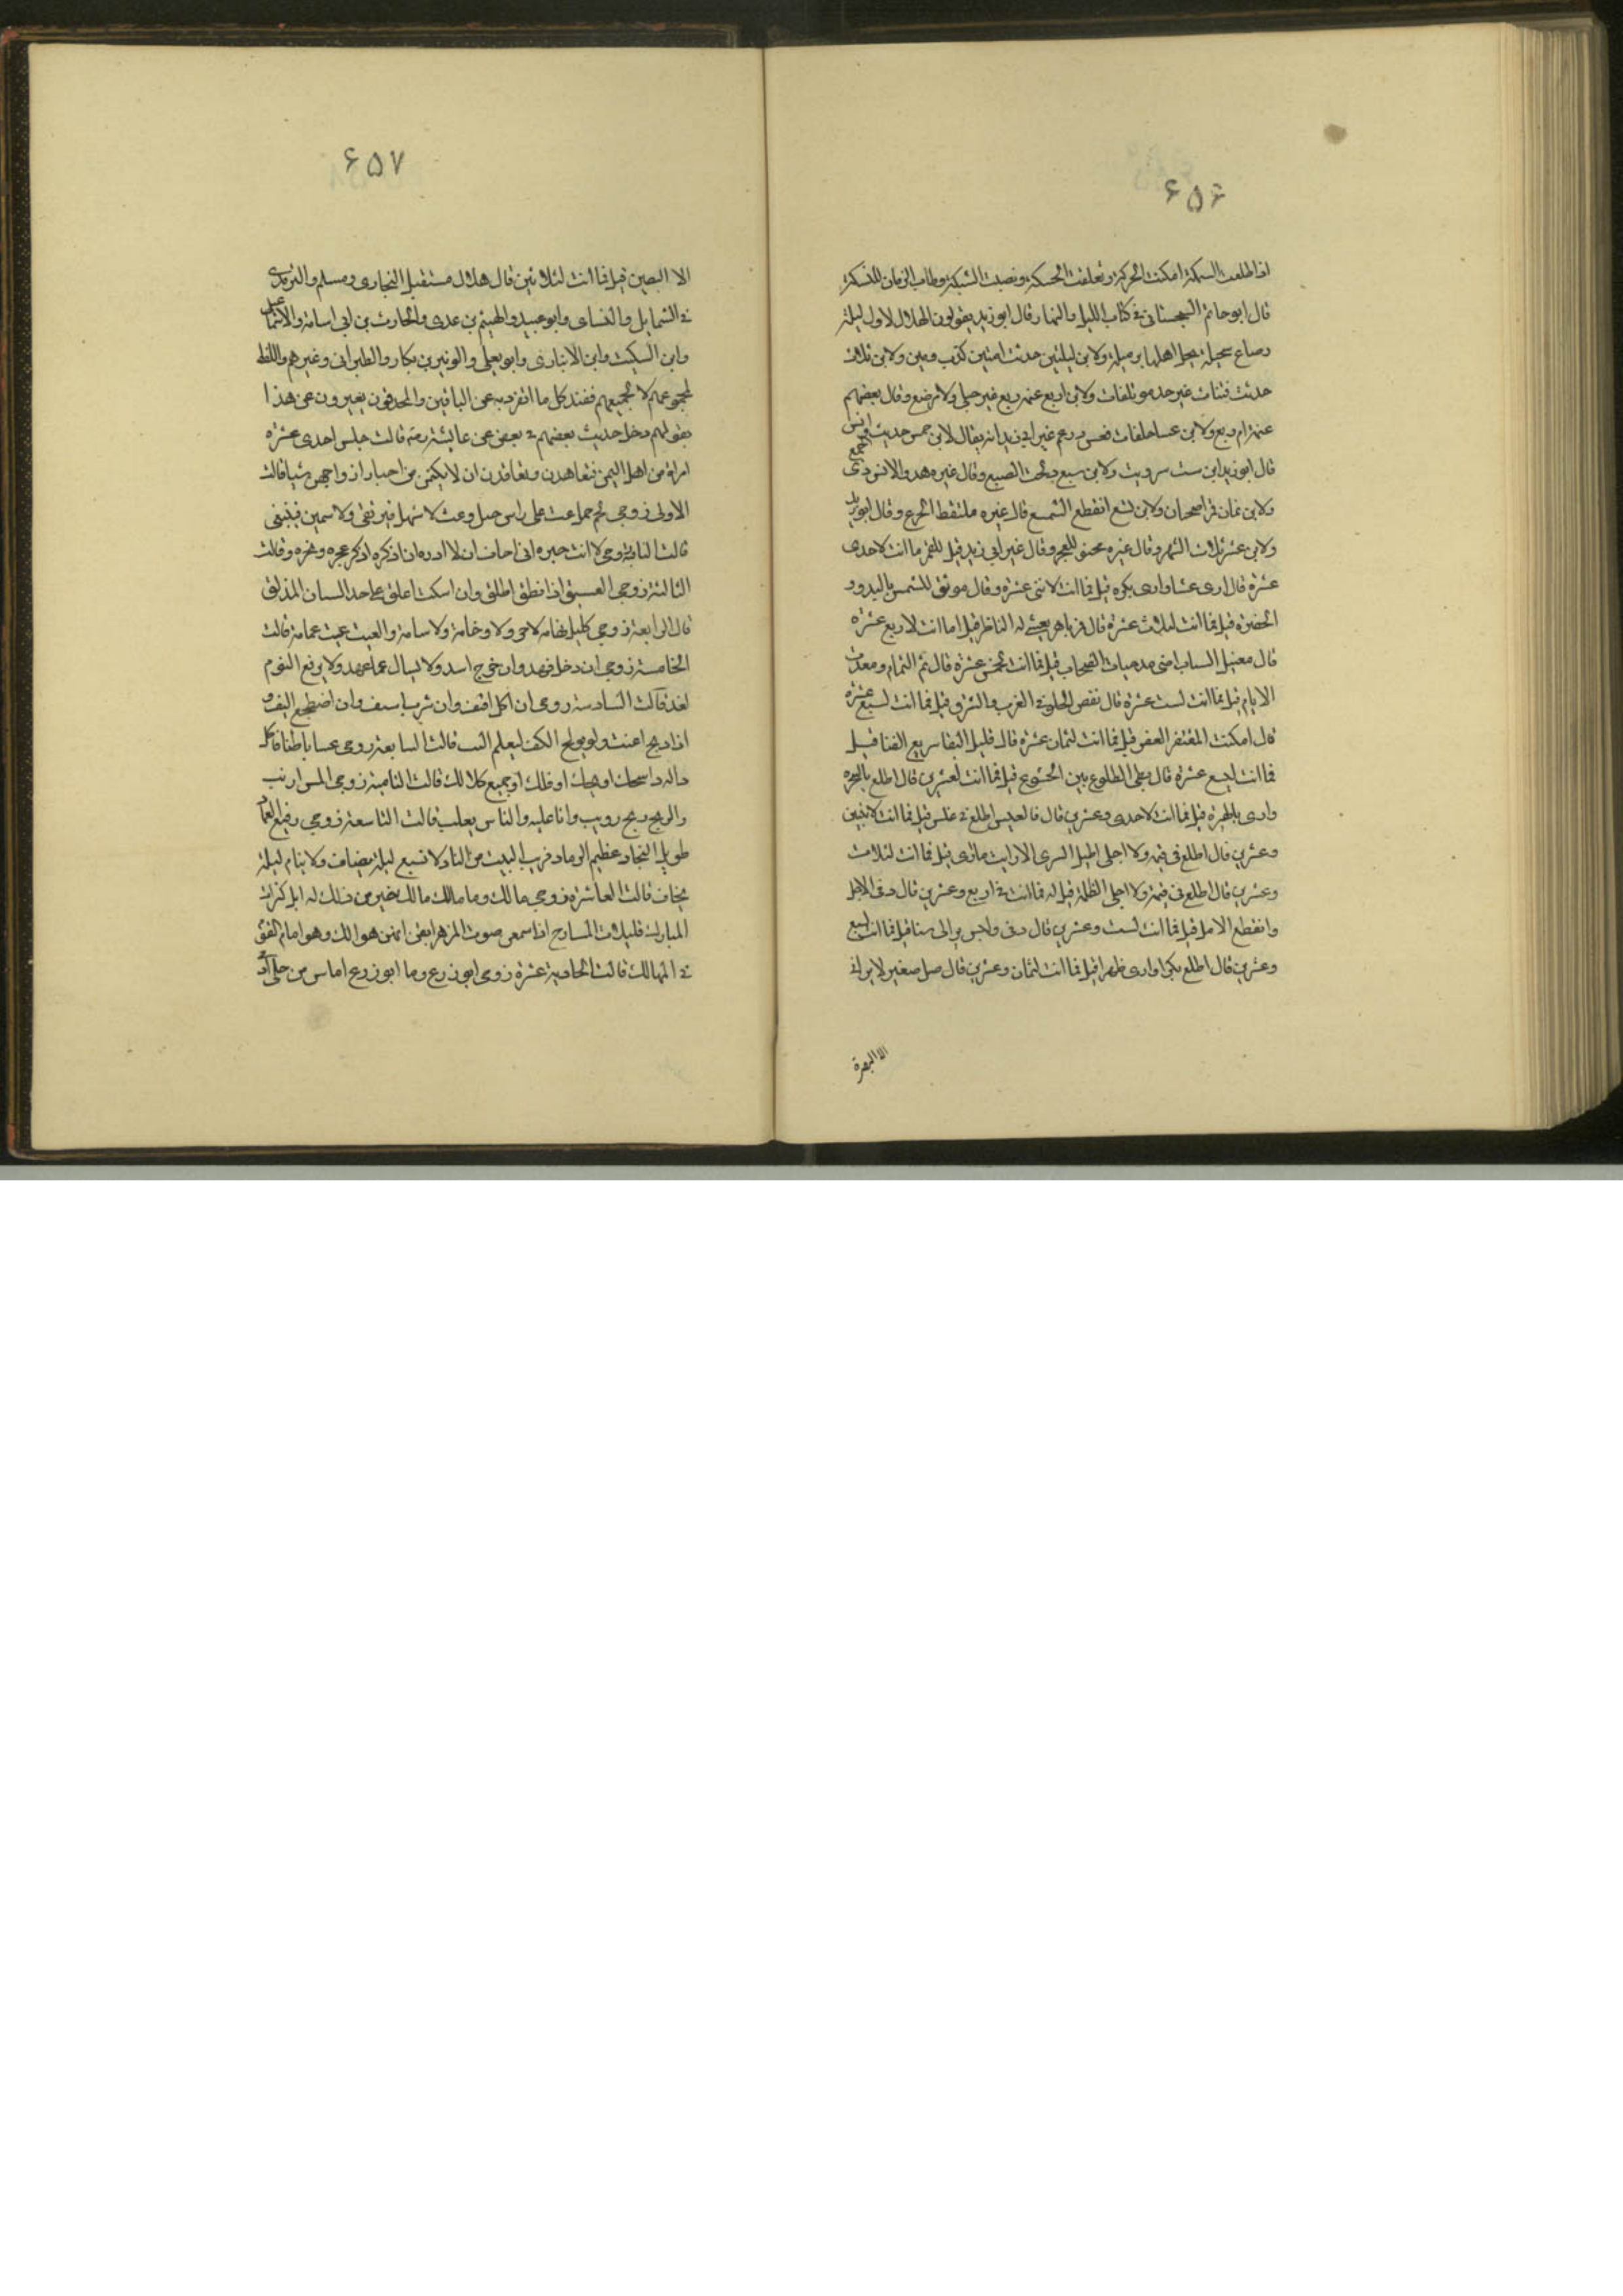 ۶۵۶
اذا طلعت السمكة امكنت الحركة وتعلقت الحسكة ونصبت الشبكة وطاب الزمان للنسكة
قال ابو حاتم السجستانى فى كتاب الليل والنهار قال ابو زيد يقولون الهلال لاول ليلة
رضاع سخيلة يحل اهلها برميلة ولابن ليلتين حديث امتين كذب ومين ولابن ثلاث
حديث فتيات غير جد موتلفات ولابن اربع عتمة ربع غير حبلى ولا مرضع وقال بعضهم
عتمة ام ربع ولابن خمس عشا خلفات قعس وزعم غير ابى زيد انه يقال لابن خمس حديث وانس
قال ابو زيد ابن ست سر وبت ولابن سبع دلجت الضبع وقال غيره هدو الانس ذى الجمع
ولابن ثمان قمر اضحيان ولابن تسع انقطع الشسع قال غيره ملتقط الجزع وقال ابو زيد
ولابن عشر ثلث الشهر وقال غيره محنق للفجر وقال غير ابى زيد قيل للقمر ما انت لاحدى
عشرة قال ارى عشا وارى بكره قيل فما انت لاثنى عشرة وقال موثق للشمس بالبدو و
الحضرة قيل فما انت لثلاث عشرة قال قمر باهر يعشى له الناظر قيل فما انت لاربع عشرة
قال مقتبل الشباب اضى السحاب قيل فما انت لخمس عشرة قال تم التمام ونفدت
الايام قيل فما انت لست عشرة قال نقص الخلق فى الغرب والشرق قيل فما انت لسبع عشرة
قال امكنت المقتفر القفر قيل فما انت لثمان عشرة قال قليل البقا سريع الفنا قيل
فما انت لتسع عشرة قال بطى الطلوع بين الخشوع قيل فما انت لعشرين قال اطلع بالسحرة
وارى بالبهرة قيل فما انت لاحدى وعشرين قال كالقبس اطلع فى غلس قيل فما انت لاثنين
وعشرين قال اطيل السرى الا ريث ما ارى قيل فما انت لثلاث
وعشرين قال اطلع فى قتمة ولا اجلى الظلمة قيل له فما انت فى اربع وعشرين قال دنى الاجل
وانقطع الامل قيل فما انت لست وعشرين قال دنى قيل فما انت لسبع
وعشرين قال اطلع بكرا وارى ظهرا قيل فما انت لثمان وعشرين قال صغير لا يرانى
الا البصرة
۶۵۷
الا البصير قيل فما انت لثلاثين قال هلال مستقبل البخارى ومسلم والترمذى
فى الشمايل والنسائى وابو عبيد والهيثم بن عدى والحارث بن ابى اسامة والاسماعيلى
وابن السكيت وابن الانبارى وابو يعلى والزبير بن بكار والطبرانى وغيرهم واللفظ
لمجموعهم لا لجميعهم فعند كل ما انفرد به عن الباقين والمحدثون يعبرون عن هذا
بقولهم دخل حديث بعضهم فى بعض عن عايشة رضه قالت جلس احدى عشرة
امراة من اهل اليمن فتعاهدن وتعاقدن ان لا يكتمن من اخبار ازواجهن شيا قالت
الاولى زوجى لحم جمل غث على راس جبل وعث لا سهل فيرتقى ولا سمين فينتقى
قالت الثانية زوجى لا ابث خبره انى اخاف ان لا اذره ان اذكره اذكر عجره وبجره وقالت
الثالثة زوجى العشنق ان انطق اطلق وان اسكت اعلق على حد السنان المذلق
قال الرابعة زوجى كليل تهامة لا حر ولا وخامة ولا سامة والغيث غيث غمامة قالت
الخامسة زوجى ان دخل فهد وان خرج اسد ولا يسال عما عهد ولا يرفع اليوم
لغد قالت السادسة زوجى ان اكل اقتف وان شرب اشتف وان اضطجع التف و
اذا ذبح اغتث ولا يولج الكف ليعلم البث قالت السابعة زوجى عيايا طباقا كل
داء له داء شجك او بجك او فلك او جمع كلا لك قالت الثامنة زوجى المس مس ارنب
والريح ريح زرنب وانا اغلبه والناس يغلب قالت التاسعة زوجى رفيع العماد
طويل النجاد عظيم الرماد قريب البيت من الناد لا يشبع ليلة يضاف ولا ينام ليلة
يخاف قالت العاشرة زوجى مالك وما مالك مالك خير من ذلك له ابل كثيرات
المبارك قليلات المسارح اذا سمعن صوت المزهر ايقن انهن هوالك وهو امام القوم
فى المهالك قالت الحادية عشرة زوجى ابو زرع وما ابو زرع اناس من حلى اذنى